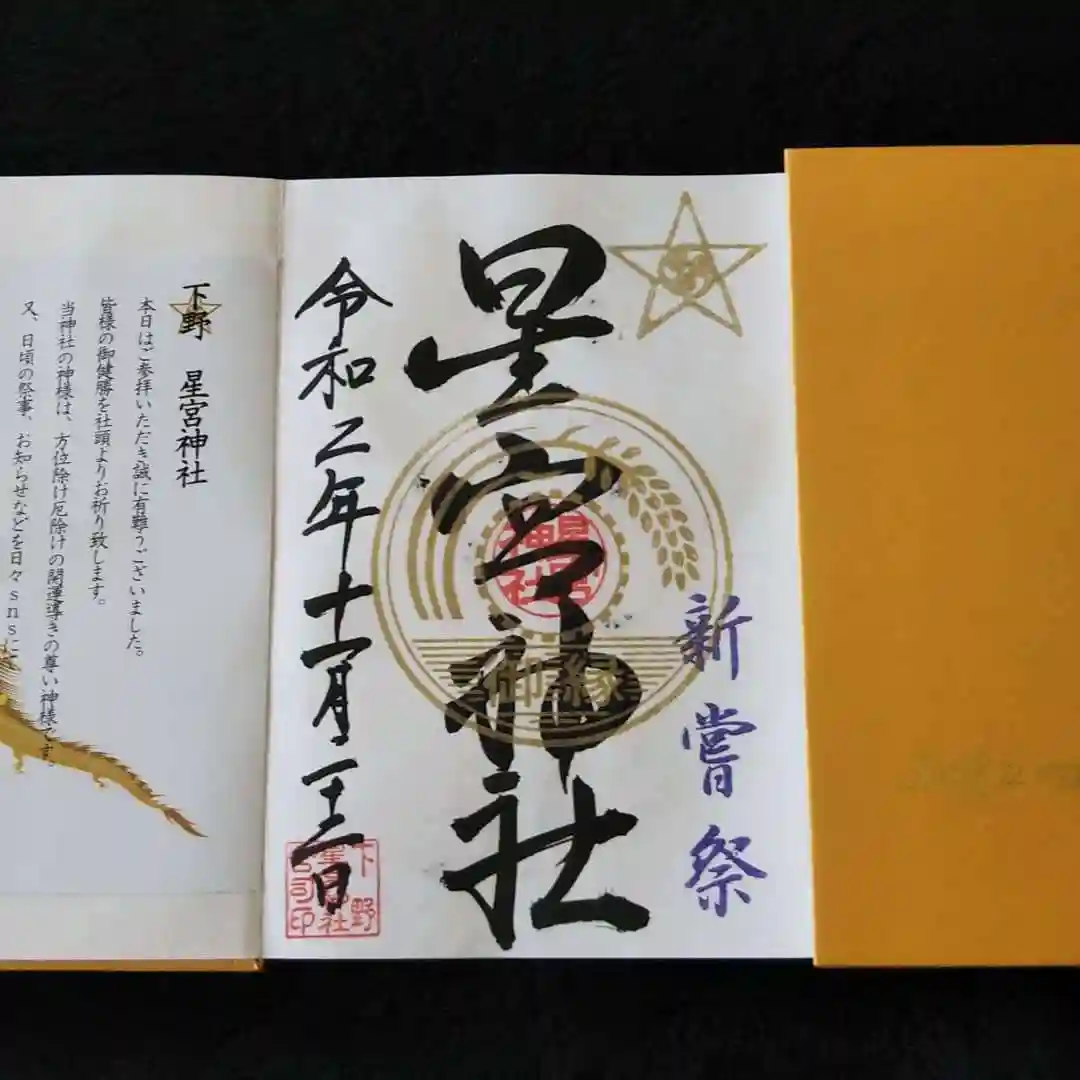 新嘗祭
星宮神社
御縁
星宮神社
令和二年十一月二十三日
下野
星宮神社
宮司印
下野 星宮神社
本日はご参拝いただき誠に有難うございました。
皆様の御健勝を社頭よりお祈り致します。
当神社の神様は、方位除け厄除けの開運導きの尊い神様です。
又、日頃の祭事、お知らせなどを日々snsにて